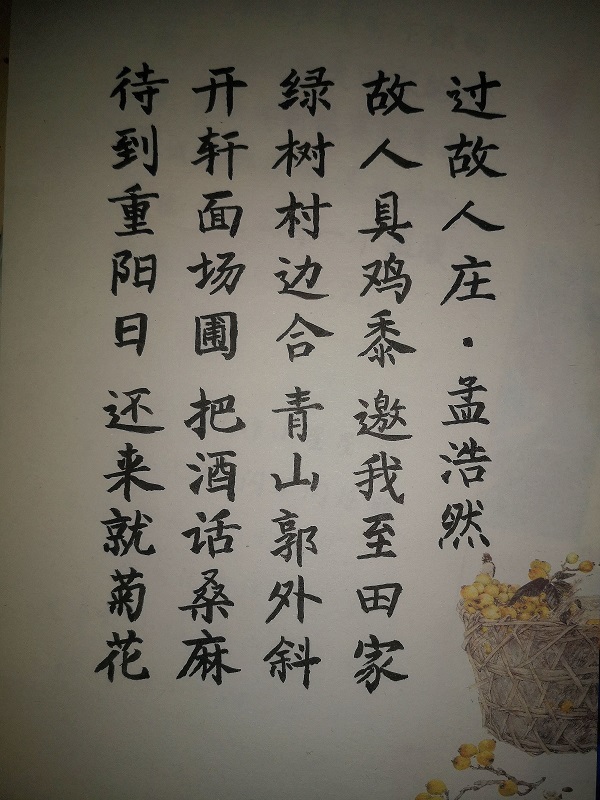 过故人庄·孟浩然
故人具鸡黍 邀我至田家
绿树村边合 青山郭外斜
开轩面场圃 把酒话桑麻
待到重阳日 还来就菊花